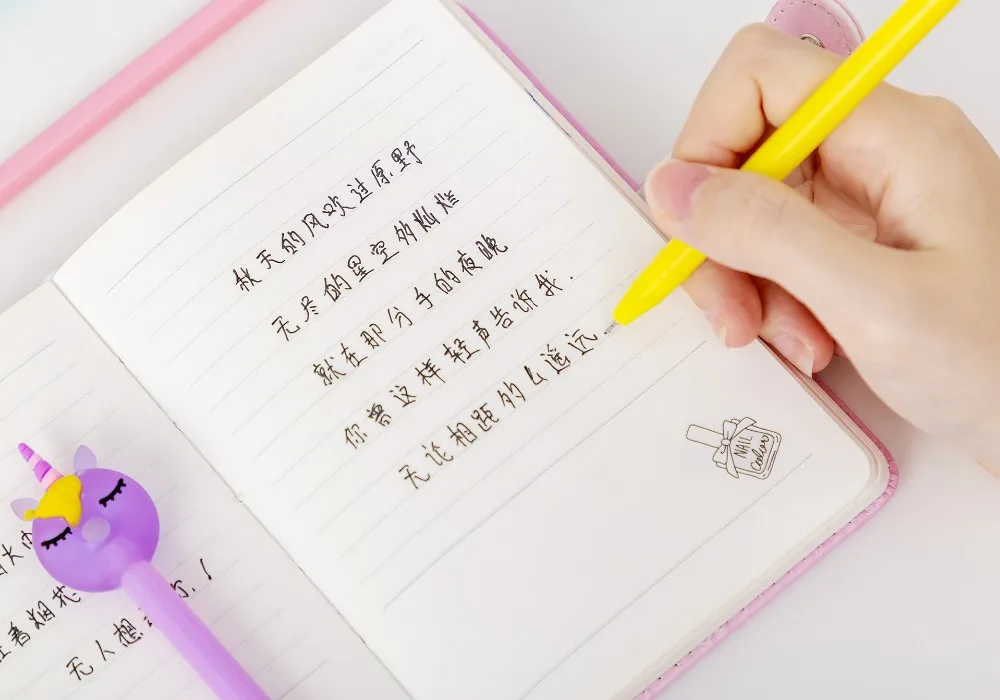 着烟
无人想
秋天的风吹过原野
无尽的星空多灿烂
就在那分手的夜晚
你曾这样轻声告诉我.
无论相距多么遥远.
NAIL
Color